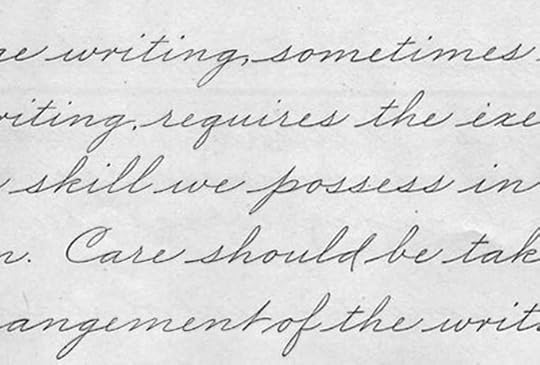 ge writing, sometimes
riting, requires the exe
skill we possess in
n. Care should be tak
angement of the writ